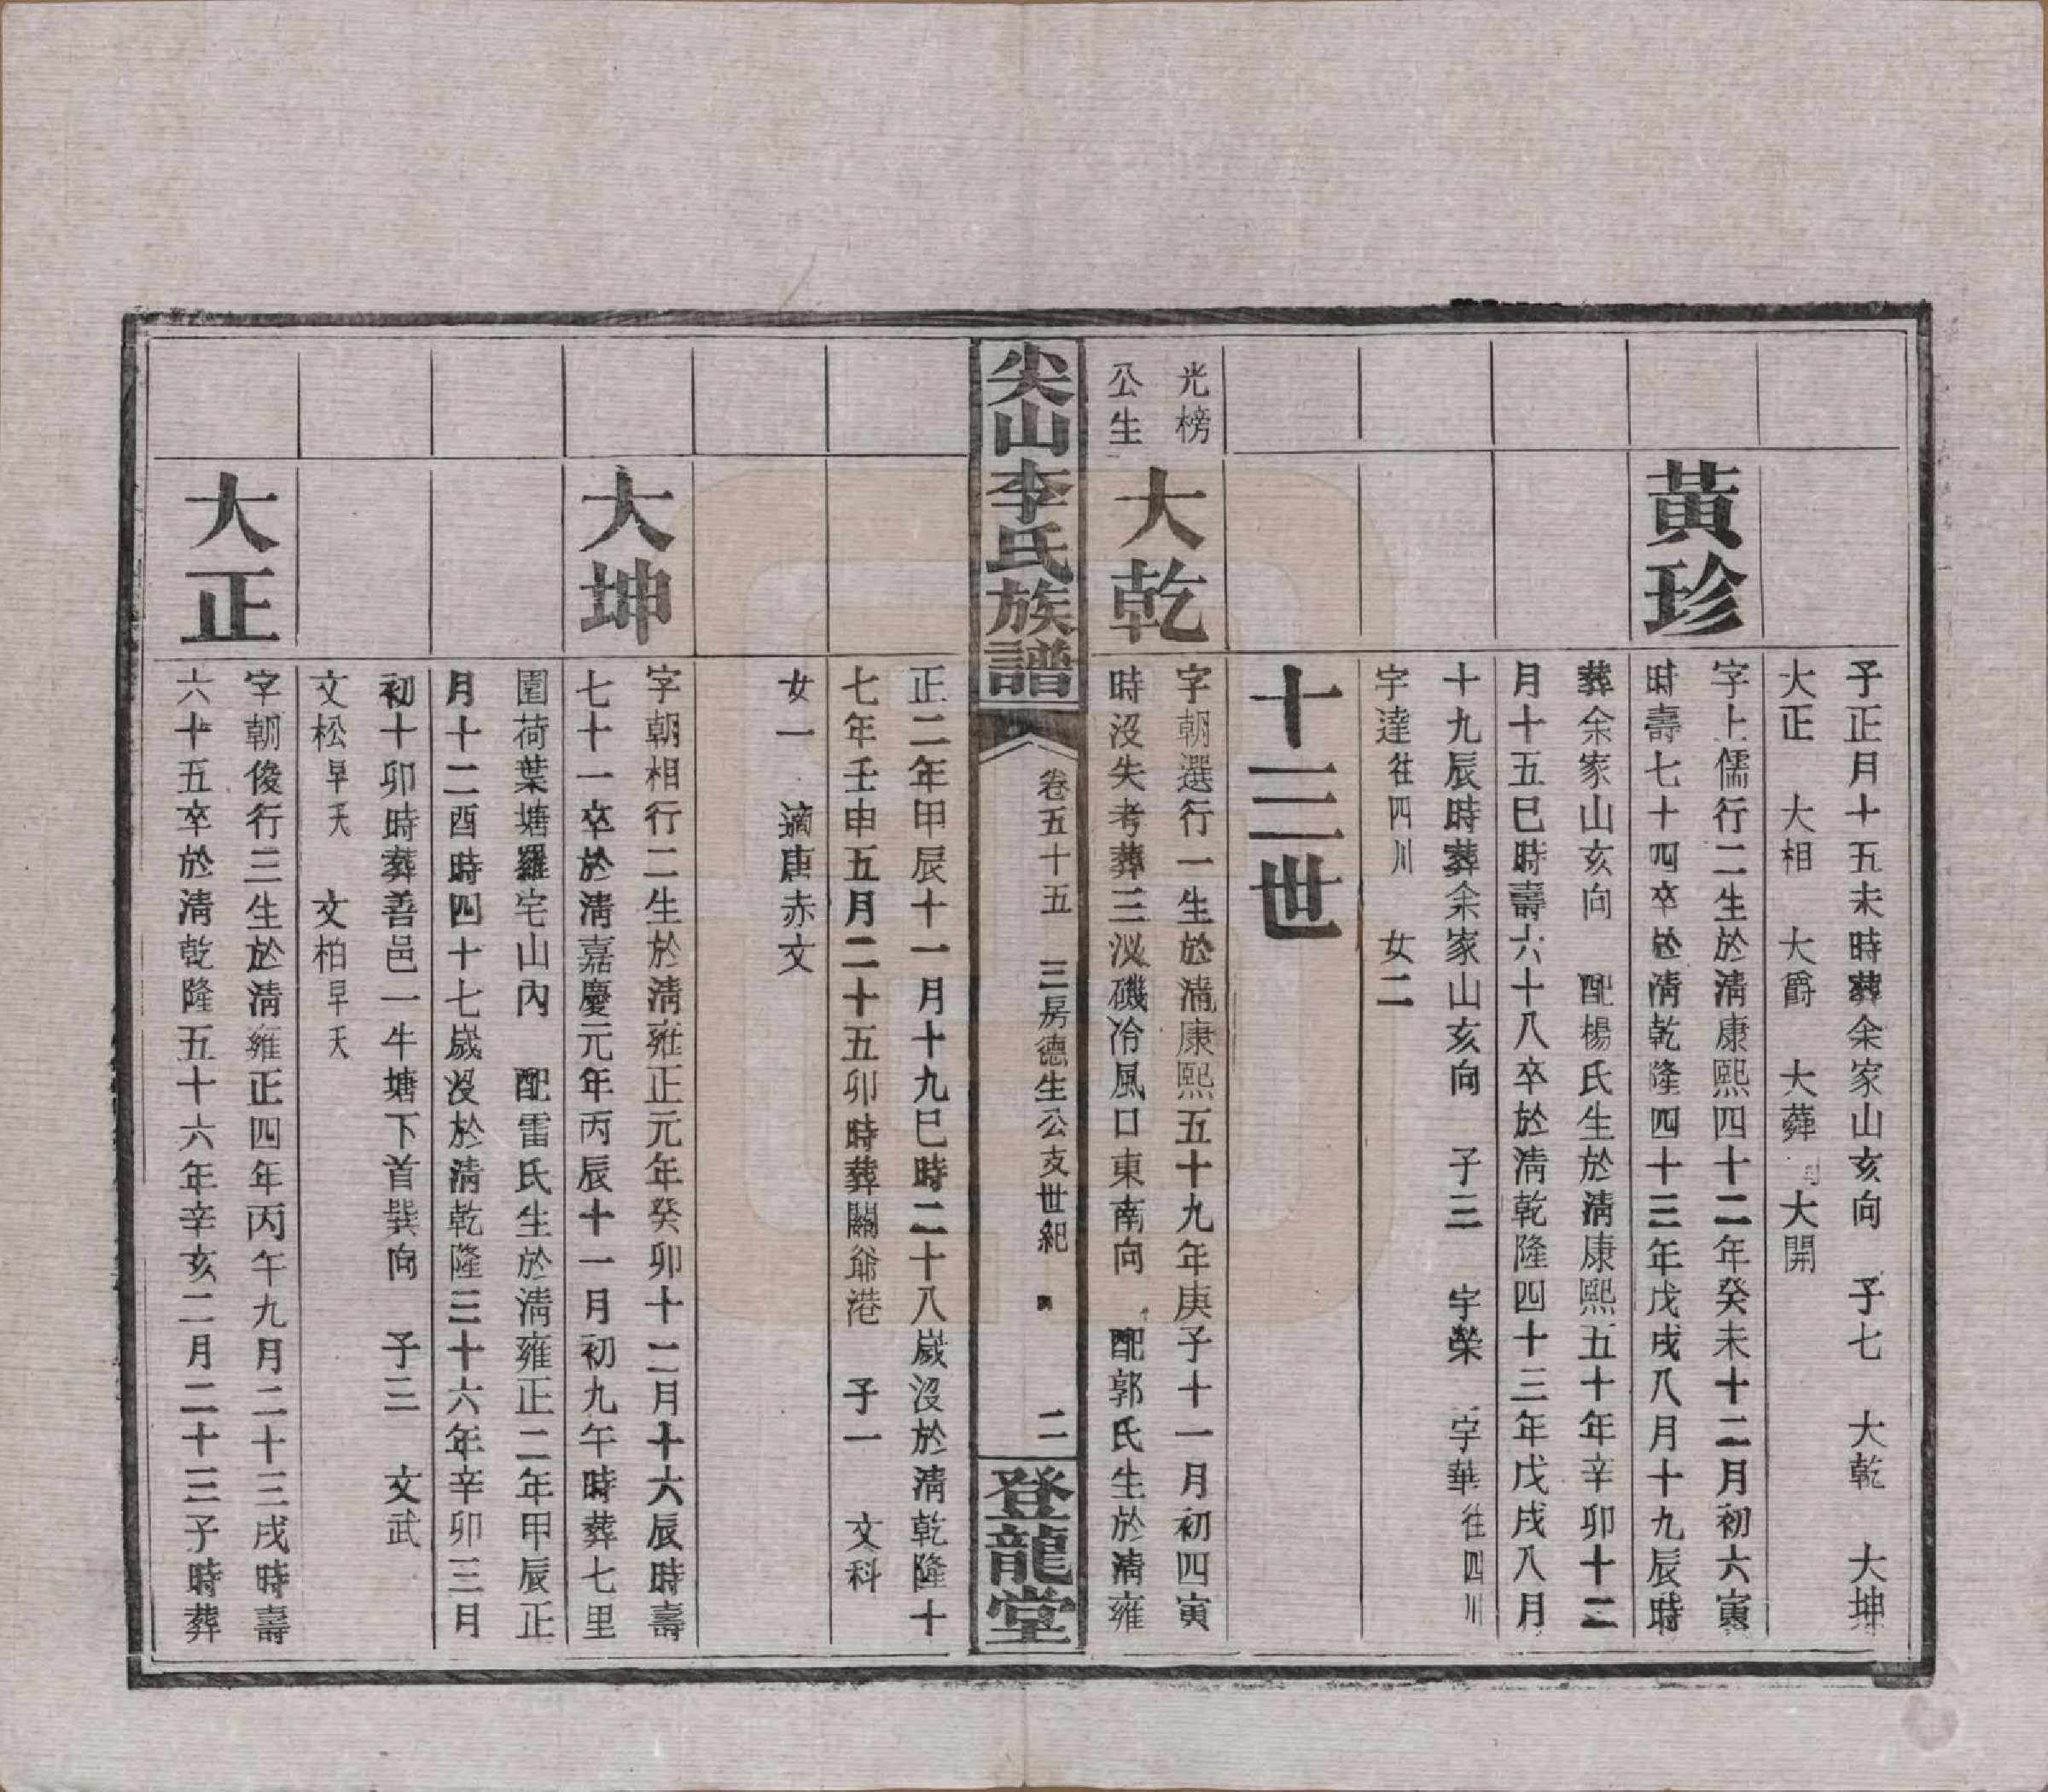 子正月十五未時葬余家山亥向　子七　大乾　大坤
大正　大相　大爵　大彝　大開
黃珍
字上儒行二生於清康熙四十二年癸未十二月初六寅
時壽七十四卒於清乾隆四十三年戊戌八月十九辰時
葬余家山亥向　配楊氏生於清康熙五十年辛卯十二
月十五巳時壽六十八卒於清乾隆四十三年戊戌八月
十九辰時葬余家山亥向　子三　字榮　字華往四川
字達往四川　女二
十三世
光榜
公生
大乾
字朝選行一生於清康熙五十九年庚子十一月初四寅
時沒失考葬三泌磯冷風口東南向　配郭氏生於清雍
尖山李氏族譜
卷五十五　三房德生公支世紀
二
登龍堂
正二年甲辰十一月十九巳時二十八歲沒於清乾隆十
七年壬申五月二十五卯時葬關爺港　子一　文科
女一　適唐赤文
大坤
字朝相行二生於清雍正元年癸卯十二月十六辰時壽
七十一卒於清嘉慶元年丙辰十一月初九午時葬七里
園荷葉塘羅宅山內　配雷氏生於清雍正二年甲辰正
月十二酉時四十七歲沒於清乾隆三十六年辛卯三月
初十卯時葬善邑一牛塘下首巽向　子三　文武
文松早夭　文柏早夭
大正
字朝俊行三生於清雍正四年丙午九月二十三戌時壽
六十五卒於清乾隆五十六年辛亥二月二十三子時葬